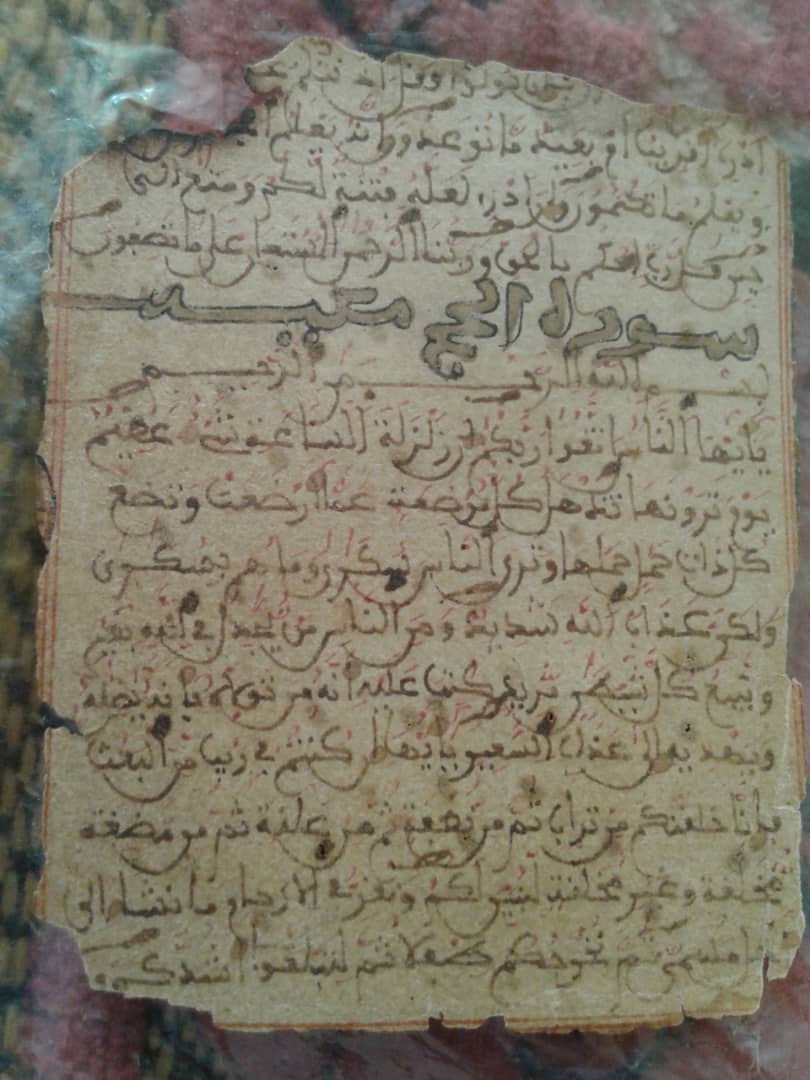 تولوا فقل اذنتكم
ادري اقريب ام بعيد ما توعدون انه يعلم
ويعلم ما تكتمون وان ادري لعله فتنة لكم ومتع الى
حين قل رب احكم بالحق وربنا الرحمن المستعان على ما تصفون
سورة الحج
بسم الله الرحمن الرحيم
يايها الناس اتقوا ربكم ان زلزلة الساعة شيء عظيم
يوم ترونها تذهل كل مرضعة عما ارضعت وتضع
كل ذات حمل حملها وترى الناس سكرى وما هم بسكرى
ولكن عذاب الله شديد ومن الناس من يجدل في الله بغير
ويتبع كل شيطن مريد كتب عليه انه من تولاه فانه يضله
ويهديه الى عذاب السعير يايها ان كنتم في ريب من البعث
فانا خلقنكم من تراب ثم من نطفة ثم من علقة ثم من مضغة
مخلقة وغير مخلقة لنبين لكم ونقر في الارحام ما نشاء الى
مسمى ثم نخرجكم طفلا ثم لتبلغوا اشدكم و